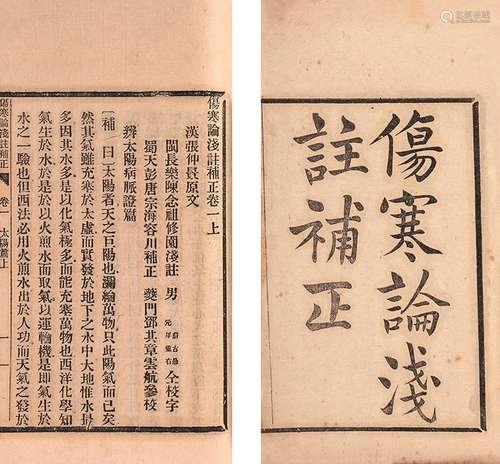 傷寒論淺
註補正
傷寒論淺註補正卷一上
漢張仲景原文
閩長樂陳念祖修園淺註 男 仝校字
蜀天彭唐宗海容川補正 夔門鄧其章雲航參校
辨太陽病脈證篇
〔補曰〕太陽者天之巨陽也瀰綸萬物只此陽氣而已矣
然其氣雖充塞於太虛而實發於地下之水中大地惟水最
多因其水多是以化氣極多而能充塞萬物也西洋化學知
氣生於水於是以火煎水而取氣以運輪機是即氣生於
水之一驗也但西法必用火煎水出於人功而天氣之發於
傷寒論淺註補正 卷一 太陽篇上